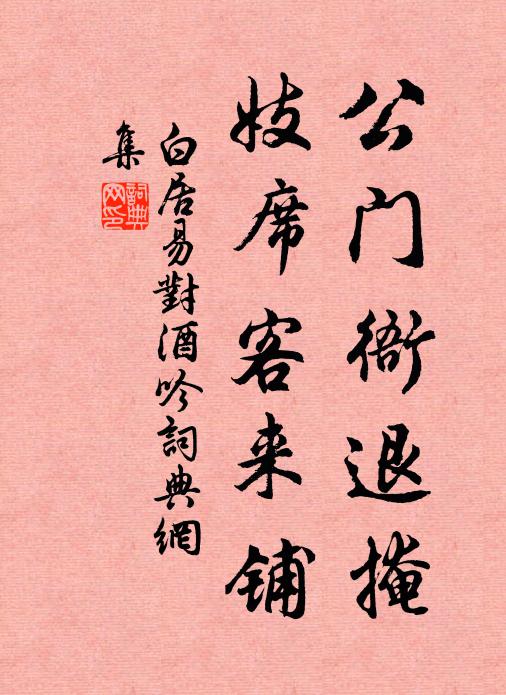 公门衙退掩
妓席客来铺
白居易對酒吟詞典網
集
詞典网印